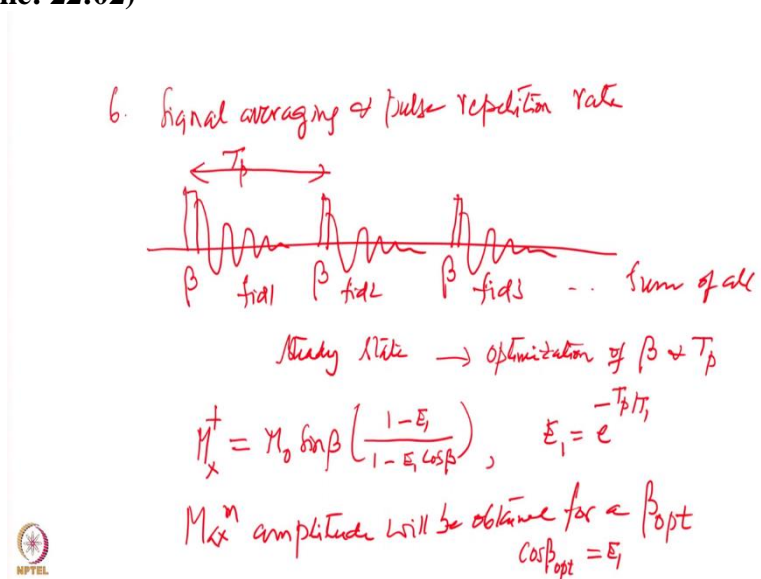 6. Signal averaging & pulse repetition rate
Tp
β fid1 β fid2 β fid3 .. Sum of all
Steady State → optimization of β & Tp
Mx⁺ = M₀ Sinβ (1-E₁ / 1-E₁ cosβ), E₁ = e^(-Tp/T₁)
Maxᵐ amplitude will be obtained for a βopt
Cosβopt = E₁
NPTEL